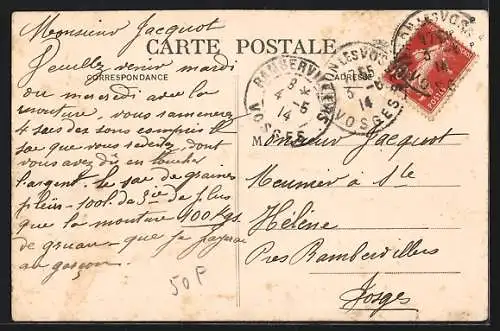 Monsieur Jacquot
CARTE POSTALE
CORRESPONDANCE
ADRESSE
Veuillez venir mardi
ou mercredi avec la
mouture, vous ramenerez
4 sacs de sons compris le
sac que vous
vous avez dû en toucher
l'argent. le sac de graines
100k de de plus
que la mouture 100 Kgs
de gruau que je payerai
au garçon.
50 F
RAMBERVILLERS
9 *
4 - 5
14
VOSGES
5 - 5
14
VOSGES
14
M
Monsieur Jacquot
Meunier à Ste
Hélène
Près Rambervillers
Vosges